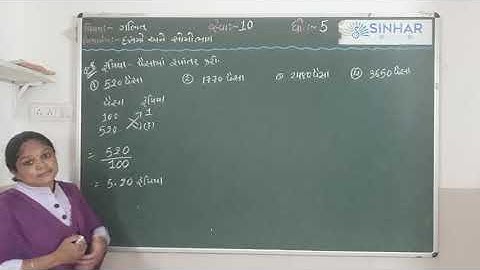 વિષય:- ગણિત કક્ષા:- 10 ધો:- 5
SINHAR
દશાંશ અને
રૂપિયા - પૈસામાં રૂપાંતર કરો.
① 520 પૈસા ② 1770 પૈસા ③ 2480 પૈસા ④ 3650 પૈસા
પૈસા રૂપિયા
100 1
520 (?)
= 520
100
= 5.20 રૂપિયા